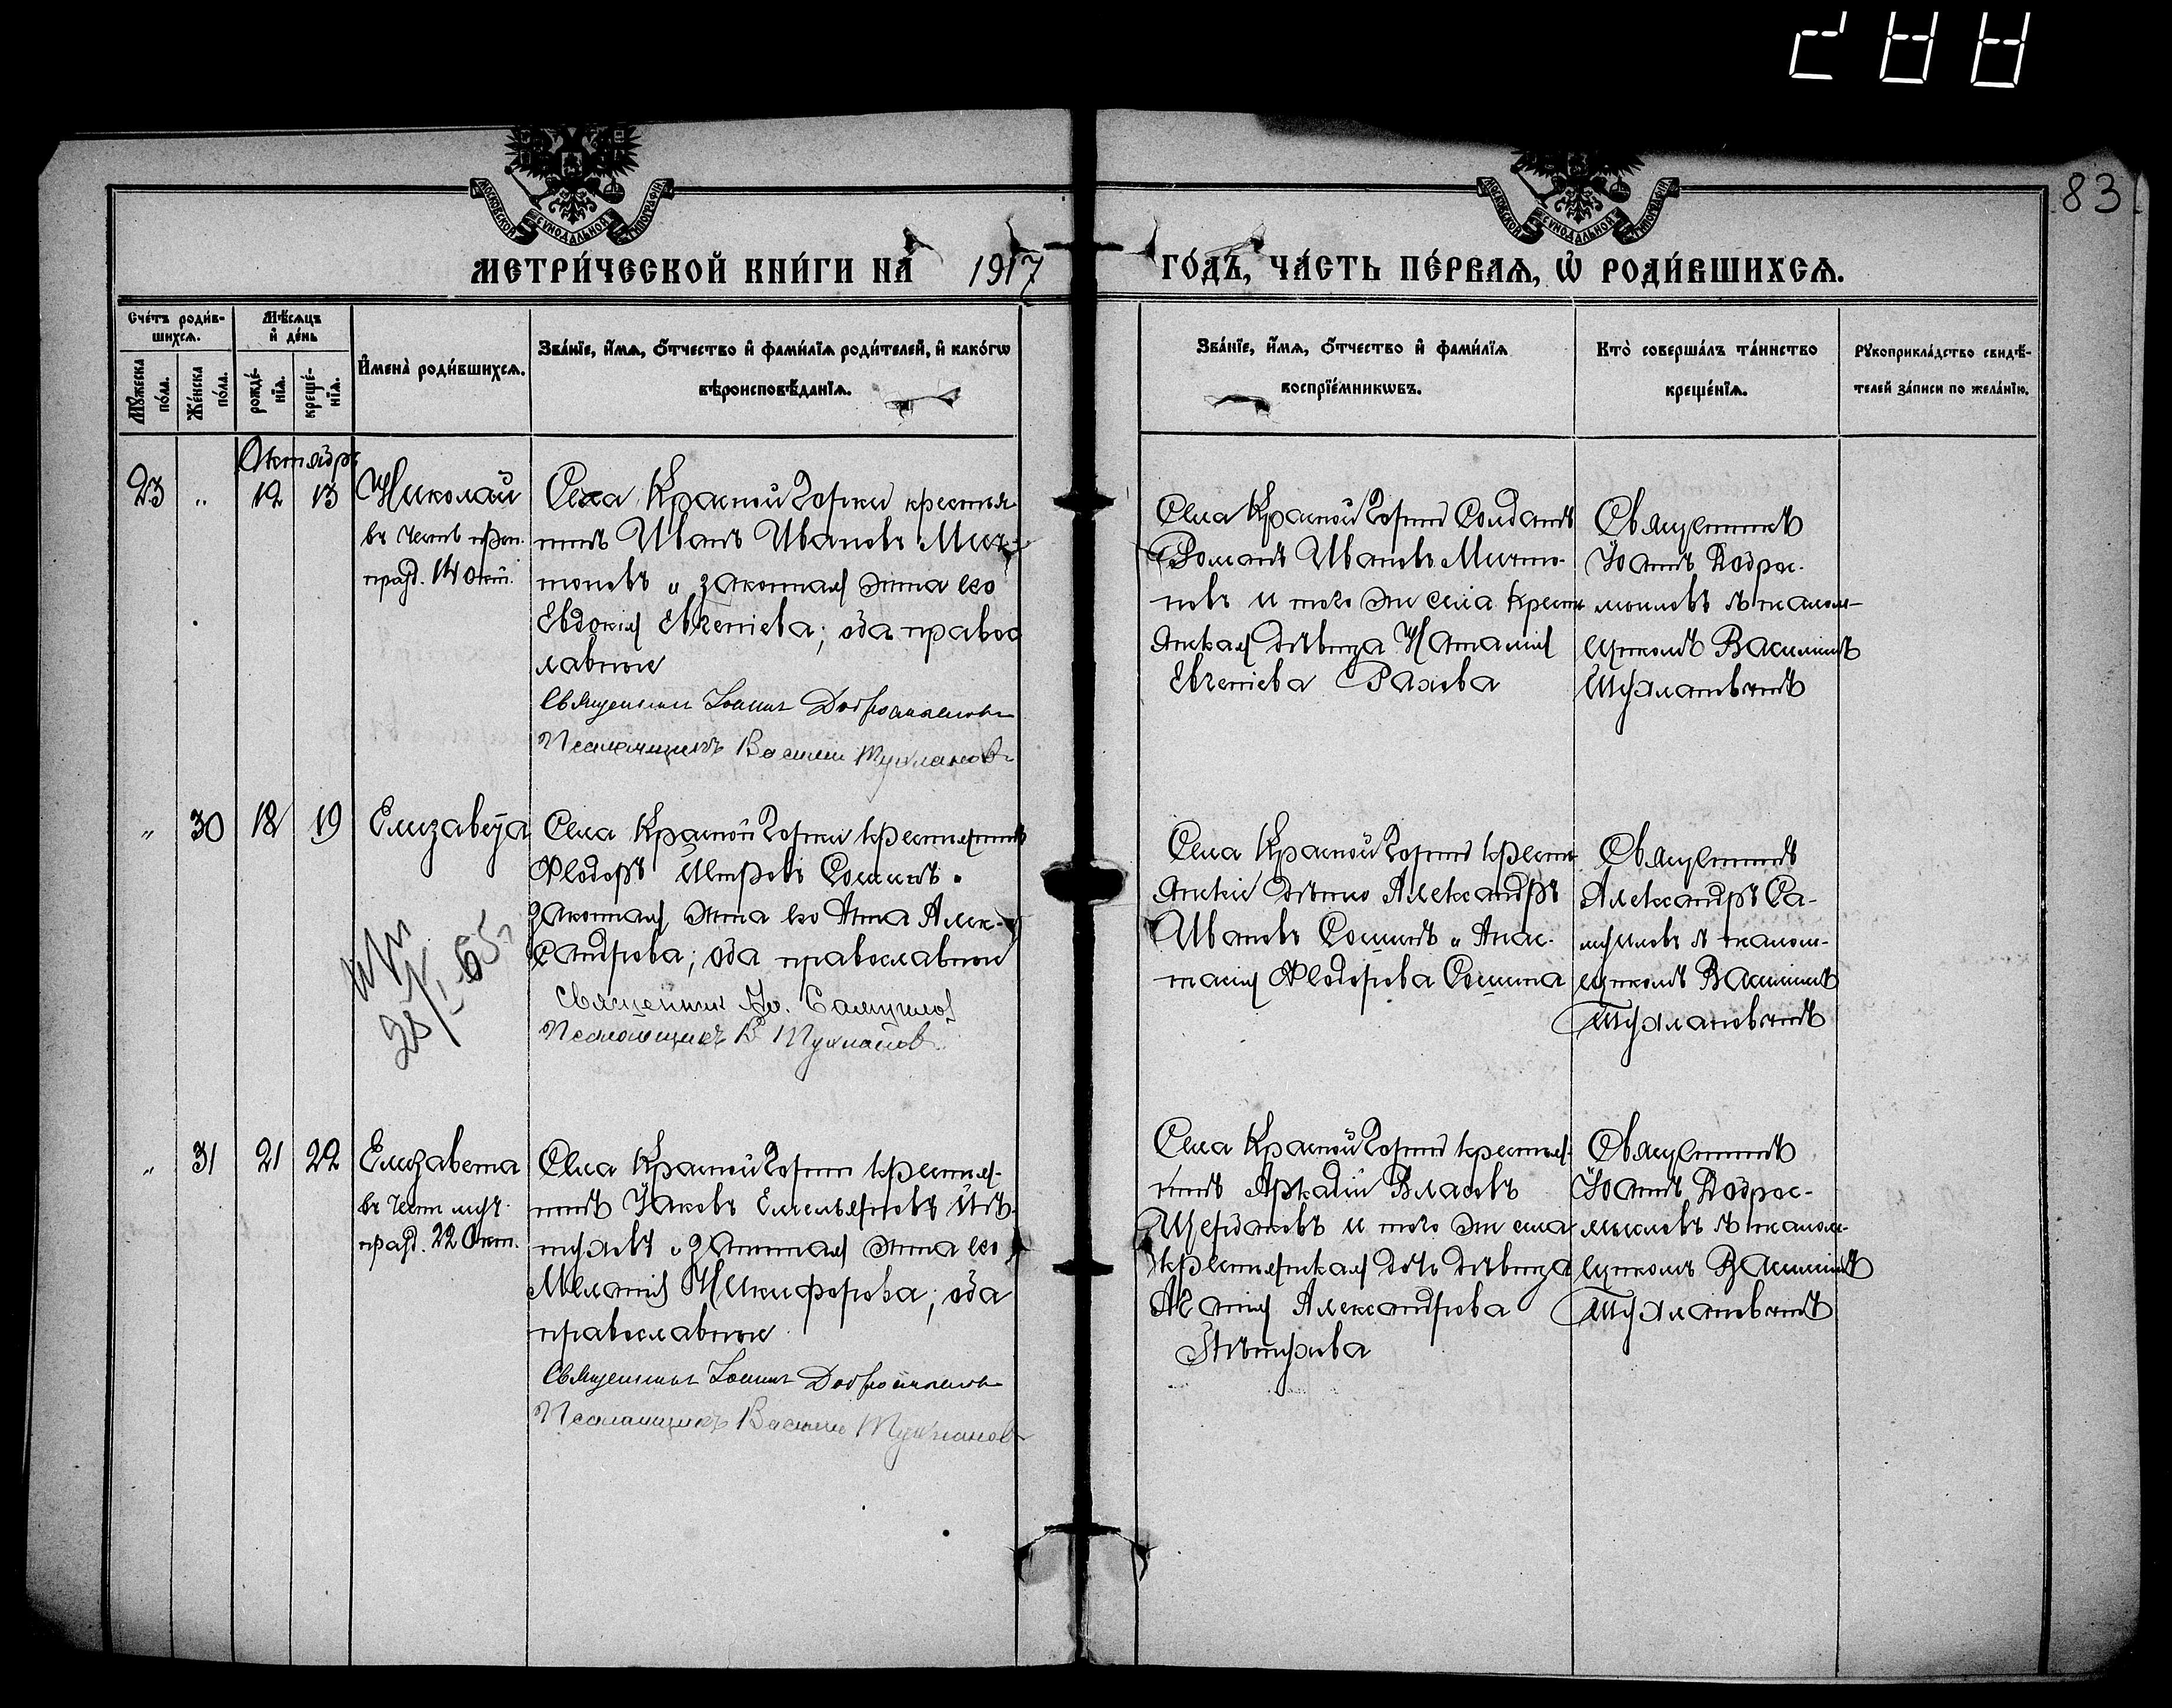 83
МОСКОВСКОЙ СѴНОДАЛЬНОЙ ТИПОГРАФІИ
МОСКОВСКОЙ СѴНОДАЛЬНОЙ ТИПОГРАФІИ
МЕТРИ́ЧЕСКОЙ КНИ́ГИ НА̀ 1917 ГО́ДЪ, ЧА́СТЬ ПЕ́РВАѦ, Ѡ҆ РОДИ́ВШИХСѦ.
Сче́тъ роди́в-
шихсѧ.
Мѣ́сѧцъ
и҆ де́нь
Мꙋ́жеска
по́ла.
Же́нска
по́ла.
рожде́-
нїѧ.
креще́-
нїѧ.
И҆мена̀ роди́вшихсѧ.
Зва́нїе, и҆́мѧ, ѻ҆́тчество и҆ фами́лїѧ роди́телей, и҆ како́гѡ
вѣроисповѣ́данїѧ.
Зва́нїе, и҆́мѧ, ѻ҆́тчество и҆ фами́лїѧ
воспрїе́мникѡвъ.
Кто̀ соверша́лъ та́инство
креще́нїѧ.
Рꙋкоприкла́дство свидѣ́-
телей за́писи по жела́нїю.
Октябрь
23 " 12 13 Николай
въ честь преп.
празд. 14 Окт.
Села Красной Горки крестья-
нинъ Иванъ Ивановъ Мич-
тоновъ и законная жена его
Евдокія Евгеніева; оба правос
лавные
Священникъ Іоаннъ Добросмысловъ
Псаломщикъ Василій Тухлановъ
Села Красной Горки Солдатъ
Романъ Ивановъ Мично-
новъ и того же села крестья
янская дѣвица Наталія
Евгеніева
Священникъ
Іоаннъ Доброс-
мысловъ съ псалом-
щикомъ Василіемъ
Тухлановымъ
" 30 18 19 Елизавета
25/I-65г
Села Красной Горки крестьянинъ
Ѳеодоръ Петровъ Сошинъ и
законная жена его Анна Алек-
сандрова; оба православные
Священникъ Ал. Самуиловъ
Псаломщикъ В Тухлановъ
Села Красной Горки кресть
янскіе дѣти Александръ
Ивановъ Сошинъ и Анас-
тасія Ѳеодорова Сошина
Священникъ
Александръ Са-
муиловъ съ псалом-
щикомъ Василіемъ
Тухлановымъ
" 31 21 22 Елизавета
въ честь муч.
празд. 22 Окт.
Села Красной Горки крестья-
нинъ Іаковъ Емельяновъ Пѣ-
туховъ и законная жена его
Меланія Никифорова; оба
православные
Священникъ Іоаннъ Добросмысловъ
Псаломщикъ Василій Тухлановъ
Села Красной Горки крестья-
нинъ Аркадій Власовъ
Щербаковъ и того же села
крестьянская дочь дѣвица
Агапія Александрова
Пѣтухова
Священникъ
Іоаннъ Доброс-
мысловъ съ псалом-
щикомъ Василіемъ
Тухлановымъ